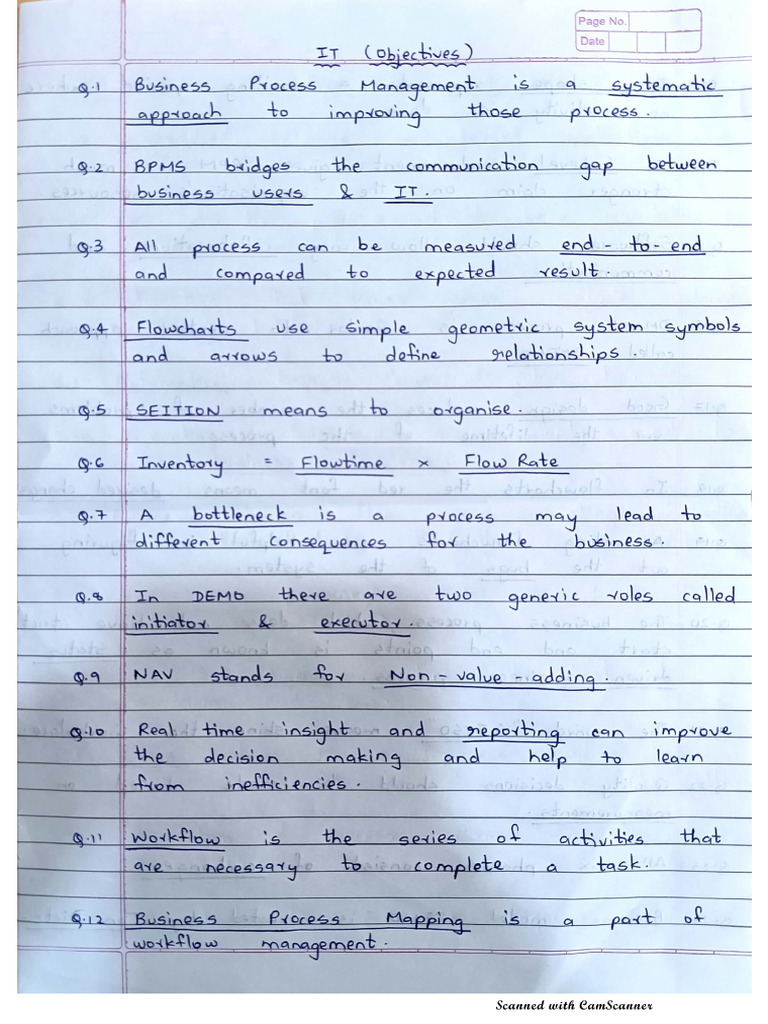 Page No.
Date
IT (Objectives)
Q.1 Business Process Management is a systematic
approach to improving those process.
Q.2 BPMS bridges the communication gap between
business users & IT.
Q.3 All process can be measured end-to-end
and compared to expected result.
Q.4 Flowcharts use simple geometric system symbols
and arrows to define relationships.
Q.5 SEITION means to organise.
Q.6 Inventory = Flowtime × Flow Rate
Q.7 A bottleneck is a process may lead to
different consequences for the business.
Q.8 In DEMO there are two generic roles called
initiator & executor.
Q.9 NAV stands for Non-value-adding.
Q.10 Real time insight and reporting can improve
the decision making and help to learn
from inefficiencies.
Q.11 Workflow is the series of activities that
are necessary to complete a task.
Q.12 Business Process Mapping is a part of
workflow management.
Scanned with CamScanner